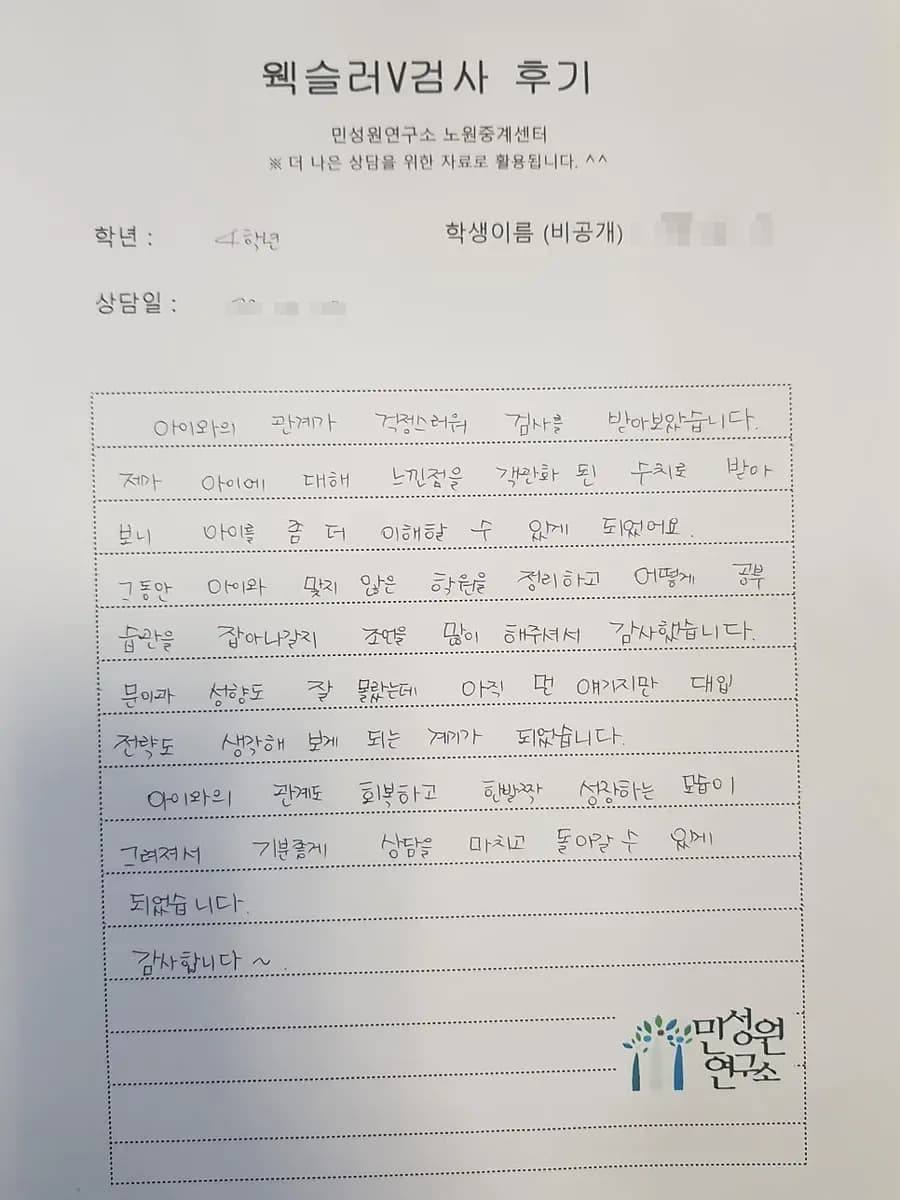 웩슬러V검사 후기
민성원연구소 노원중계센터
※ 더 나은 상담을 위한 자료로 활용됩니다. ^^
학년 : 4학년 학생이름 (비공개)
상담일 :
아이와의 관계가 걱정스러워 검사를 받아보았습니다.
제가 아이에 대해 느낀점을 객관화 된 수치로 받아
보니 아이를 좀 더 이해할 수 있게 되었어요.
그동안 아이와 맞지 않은 학원을 정리하고 어떻게 공부
습관을 잡아나갈지 조언을 많이 해주셔서 감사했습니다.
문이과 성향도 잘 몰랐는데 아직 먼 얘기지만 대입
전략도 생각해 보게 되는 계기가 되었습니다.
아이와의 관계도 회복하고 한발짝 성장하는 모습이
그려져서 기분좋게 상담을 마치고 돌아갈 수 있게
되었습니다.
감사합니다 ~.
민성원
연구소